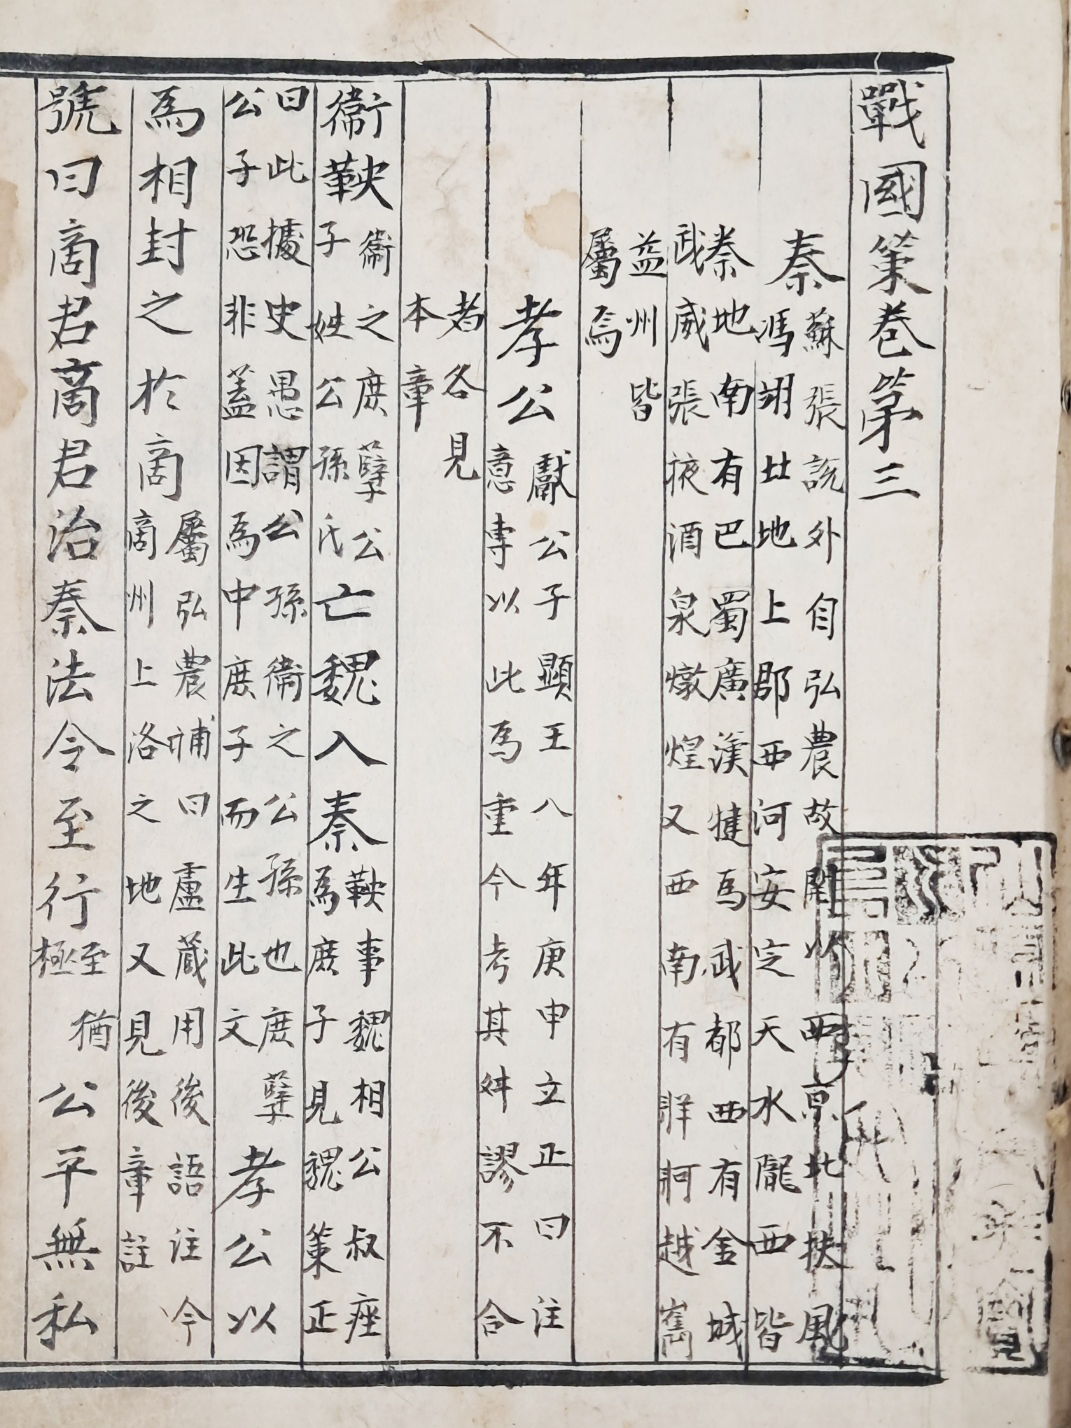 戰國策卷第三
秦
蘇張說外自弘農故關以西京兆扶風
馮翊北地上郡西河安定天水隴西皆
秦地南有巴蜀廣漢犍為武都西有金城
武威張掖酒泉燉煌又西南有牂牁越嶲
益州皆
屬焉
孝公
獻公子顯王八年庚申立正曰注
意專以此為重今考其舛謬不合
者各見
本章
衞鞅
衞之庶孽公
子姓公孫氏
亡魏入秦
鞅事魏相公叔座
為庶子見魏策正
曰此據史愚謂公孫衞之公孫也庶孽
公子恐非蓋因為中庶子而生此文
孝公以
為相封之於商
屬弘農補曰盧藏用後語注今
商州上洛之地又見後章註
號曰商君商君治秦法令至行
至猶
極
公平無私